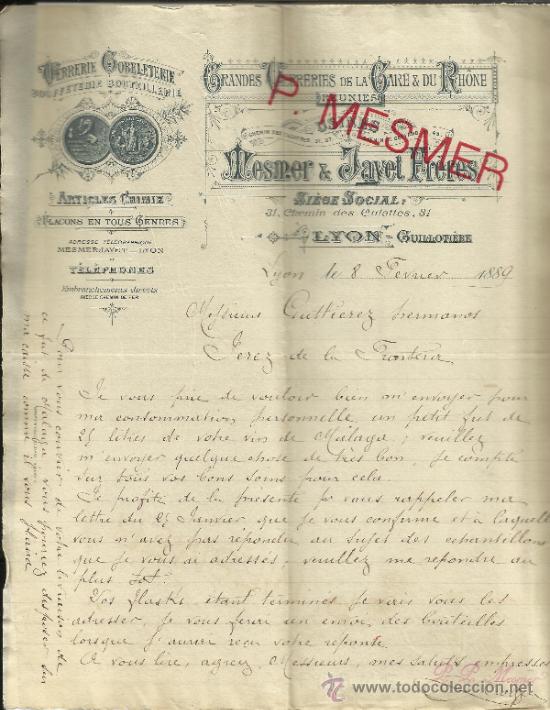 Verrerie Gobeleterie
Bouffeterie Bouteillerie
Articles Chimie
Flacons en tous Genres
Adresse Télégraphique
Mesmerjavet-Lyon
Téléphones
Embranchements directs
Grandes Verreries de la Gare & du Rhône
Réunies
P. MESMER
Mesmer & Javet Frères
Siège Social:
31, Chemin des Culattes, 31
LYON Guillotière
Lyon le 8 Fevrier 1889
Messieurs Guttierez hermanos
Jerez de la Frontera
Je vous prie de vouloir bien m'envoyer pour
ma consommation personnelle un petit fut de
25 litres de votre vin de Malaga; veuillez
m'envoyer quelque chose de très bon, je compte
sur tous vos bons soins pour cela.
Je profite de la présente pr vous rappeler ma
lettre du 25 Janvier, que je vous confirme et à laquelle
vous n'avez pas repondu au sujet des echantillons
que je vous ai adressés, veuillez me repondre au
plus tot.
Vos flasks etant terminés je vais vous les
adresser, je vous ferai un envoi des bouteilles
lorsque j'aurai reçu votre reponse.
A vous lire, agréez, Messieurs, mes saluts empressés
P. Mesmer
Pour vous couvrir de votre livraison de
ce fut de Malaga vous pourrez disposer sur
ma caisse comme il vous plaira
todocoleccion.net